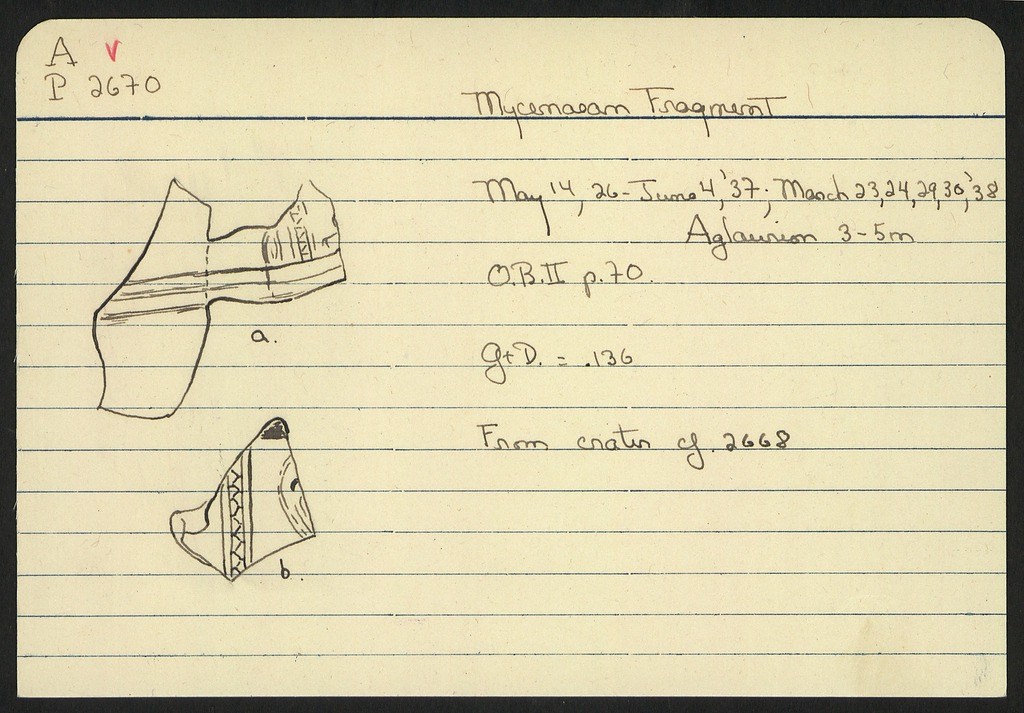 A v
P 2670
Mycenaean Fragment
May 14, 26 - June 4, '37; March 23, 24, 29, 30, '38
Aglaurion 3-5m
O.B. II p. 70.
a.
Gt D. = .136
From crater cf. 2668
b.